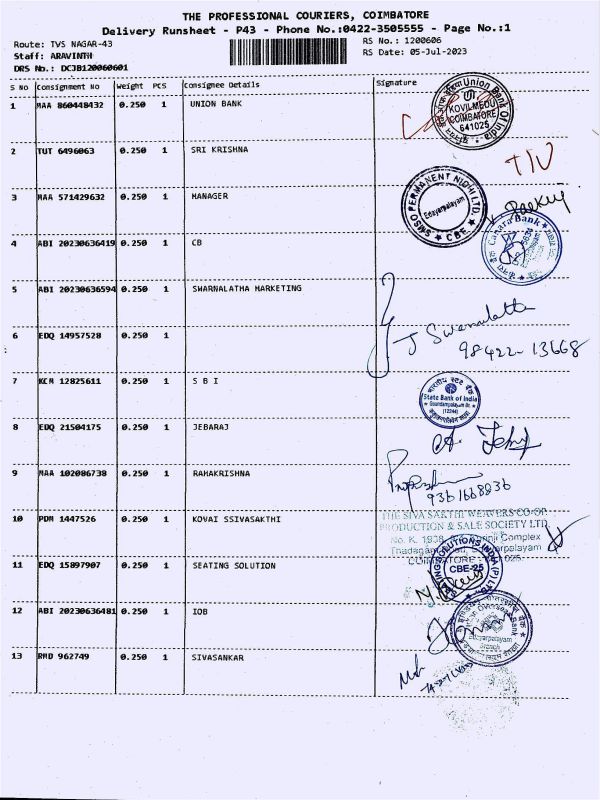 THE PROFESSIONAL COURIERS, COIMBATORE
Delivery Runsheet - P43 - Phone No.:0422-3505555 - Page No.:1
Route: TVS NAGAR-43
Staff: ARAVINTH
DRS No.: DCJB120060601
RS No.: 1200606
RS Date: 05-Jul-2023
S No Consignment No Weight PCS Consignee Details Signature
1 MAA 860448432 0.250 1 UNION BANK
Union Bank of India
KOVILMEDU
COIMBATORE
641025
2 TUT 6496063 0.250 1 SRI KRISHNA
3 MAA 571429632 0.250 1 MANAGER
PERMANENT NIDHI LTD.
Edayarpalayam
CBE
4 ABI 20230636419 0.250 1 CB
Canara Bank
5 ABI 20230636594 0.250 1 SWARNALATHA MARKETING
J Swarnalatha
98422-13668
6 EDQ 14957528 0.250 1
7 KCM 12825611 0.250 1 S B I
भारतीय स्टेट बैंक
State Bank of India
8 EDQ 21504175 0.250 1 JEBARAJ
9 MAA 102086738 0.250 1 RAMAKRISHNA
9361668836
10 PDM 1447526 0.250 1 KOVAI SSIVASAKTHI
THE SIVA SAKTHI WEAVERS CO-OP.
PRODUCTION & SALE SOCIETY LTD.
Complex
11 EDQ 15897907 0.250 1 SEATING SOLUTION
SEATING SOLUTIONS INDIA (P) LTD
CBE-25
12 ABI 20230636481 0.250 1 IOB
Indian Overseas Bank
13 RMD 962749 0.250 1 SIVASANKAR